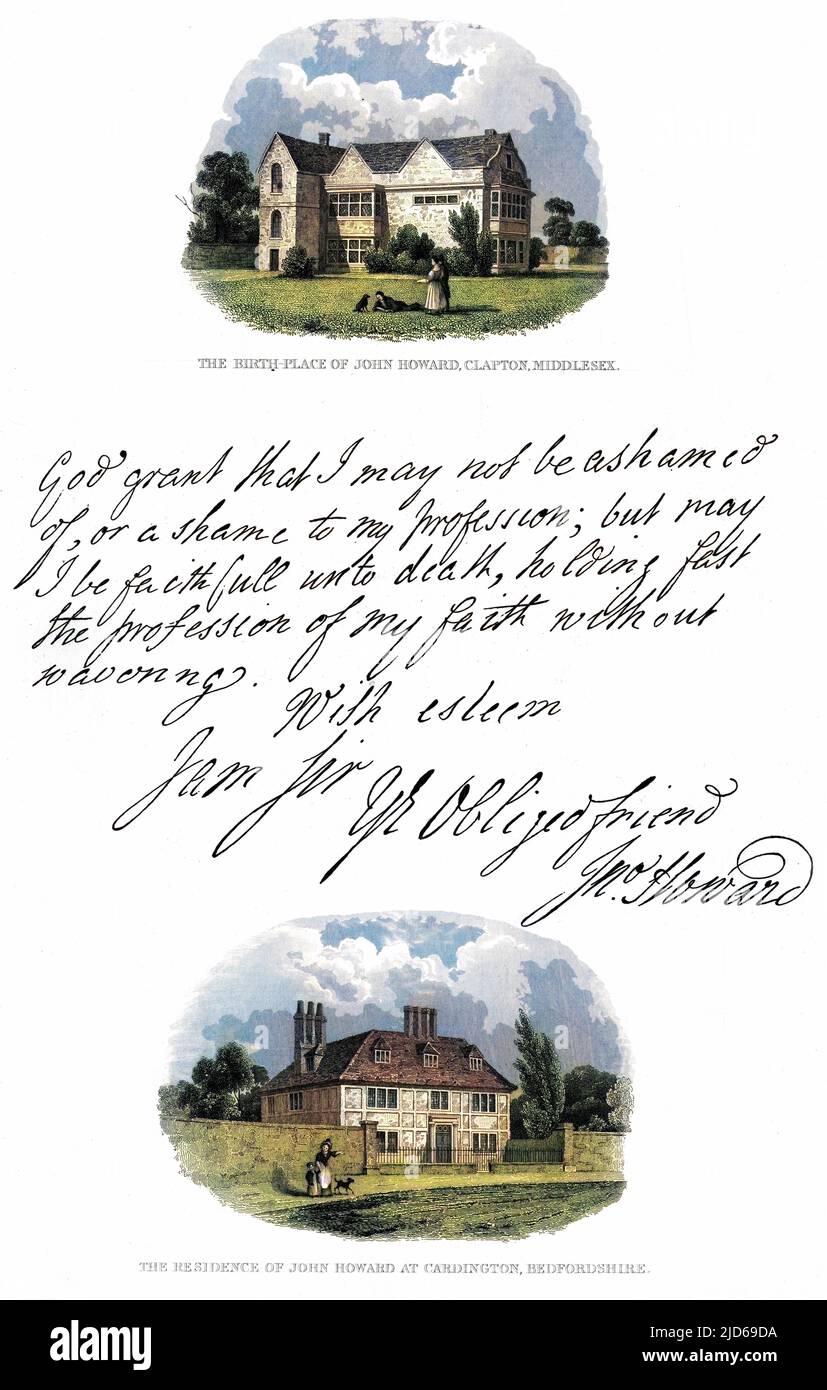 THE BIRTH-PLACE OF JOHN HOWARD, CLAPTON, MIDDLESEX.
God grant that I may not be ashamed
of, or a shame to my profession; but may
I be faithfull unto death, holding fast
the profession of my faith without
wavering.
With esteem
I am Sir
Yr Obliged friend
Jno. Howard
THE RESIDENCE OF JOHN HOWARD AT CARDINGTON, BEDFORDSHIRE.
alamy
Image ID: 2JD69DA
www.alamy.com